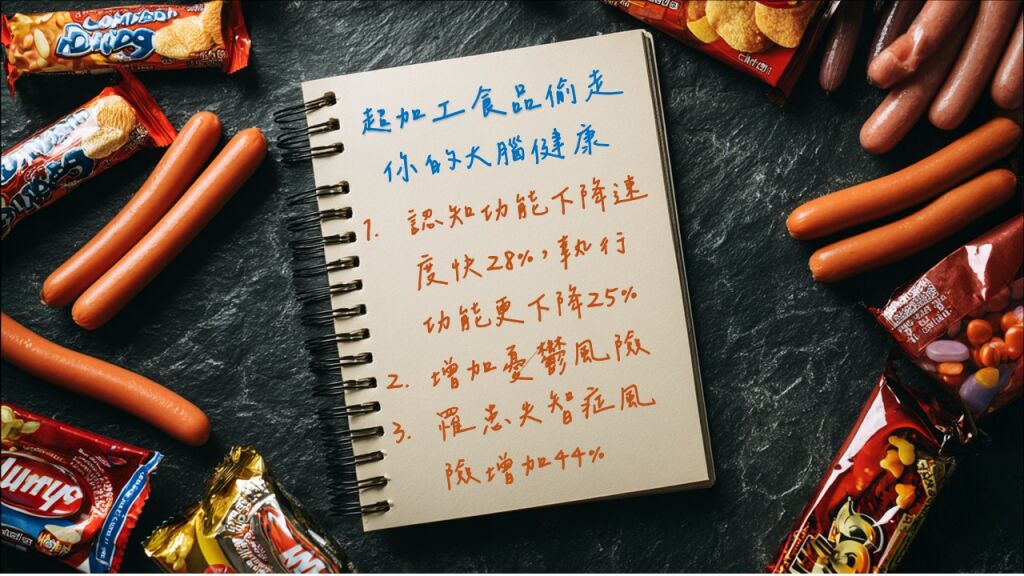 超加工食品偷走
你的大腦健康
1. 認知功能下降速
度快28%，執行
功能更下降25%
2. 增加憂鬱風險
3. 罹患失智症風
險增加44%